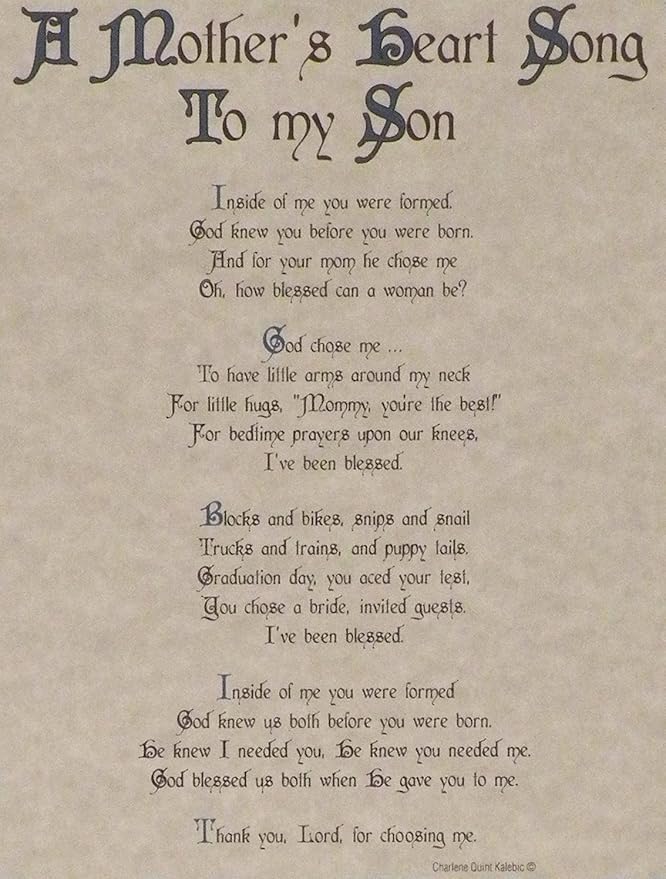 A Mother's Heart Song
To my Son
Inside of me you were formed.
God knew you before you were born.
And for your mom he chose me
Oh, how blessed can a woman be?
God chose me ...
To have little arms around my neck
For little hugs, "Mommy, you're the best!"
For bedtime prayers upon our knees,
I've been blessed.
Blocks and bikes, snips and snail
Trucks and trains, and puppy tails.
Graduation day, you aced your test,
You chose a bride, invited guests.
I've been blessed.
Inside of me you were formed
God knew us both before you were born.
He knew I needed you, He knew you needed me.
God blessed us both when He gave you to me.
Thank you, Lord, for choosing me.
Charlene Quint Kalebic ©